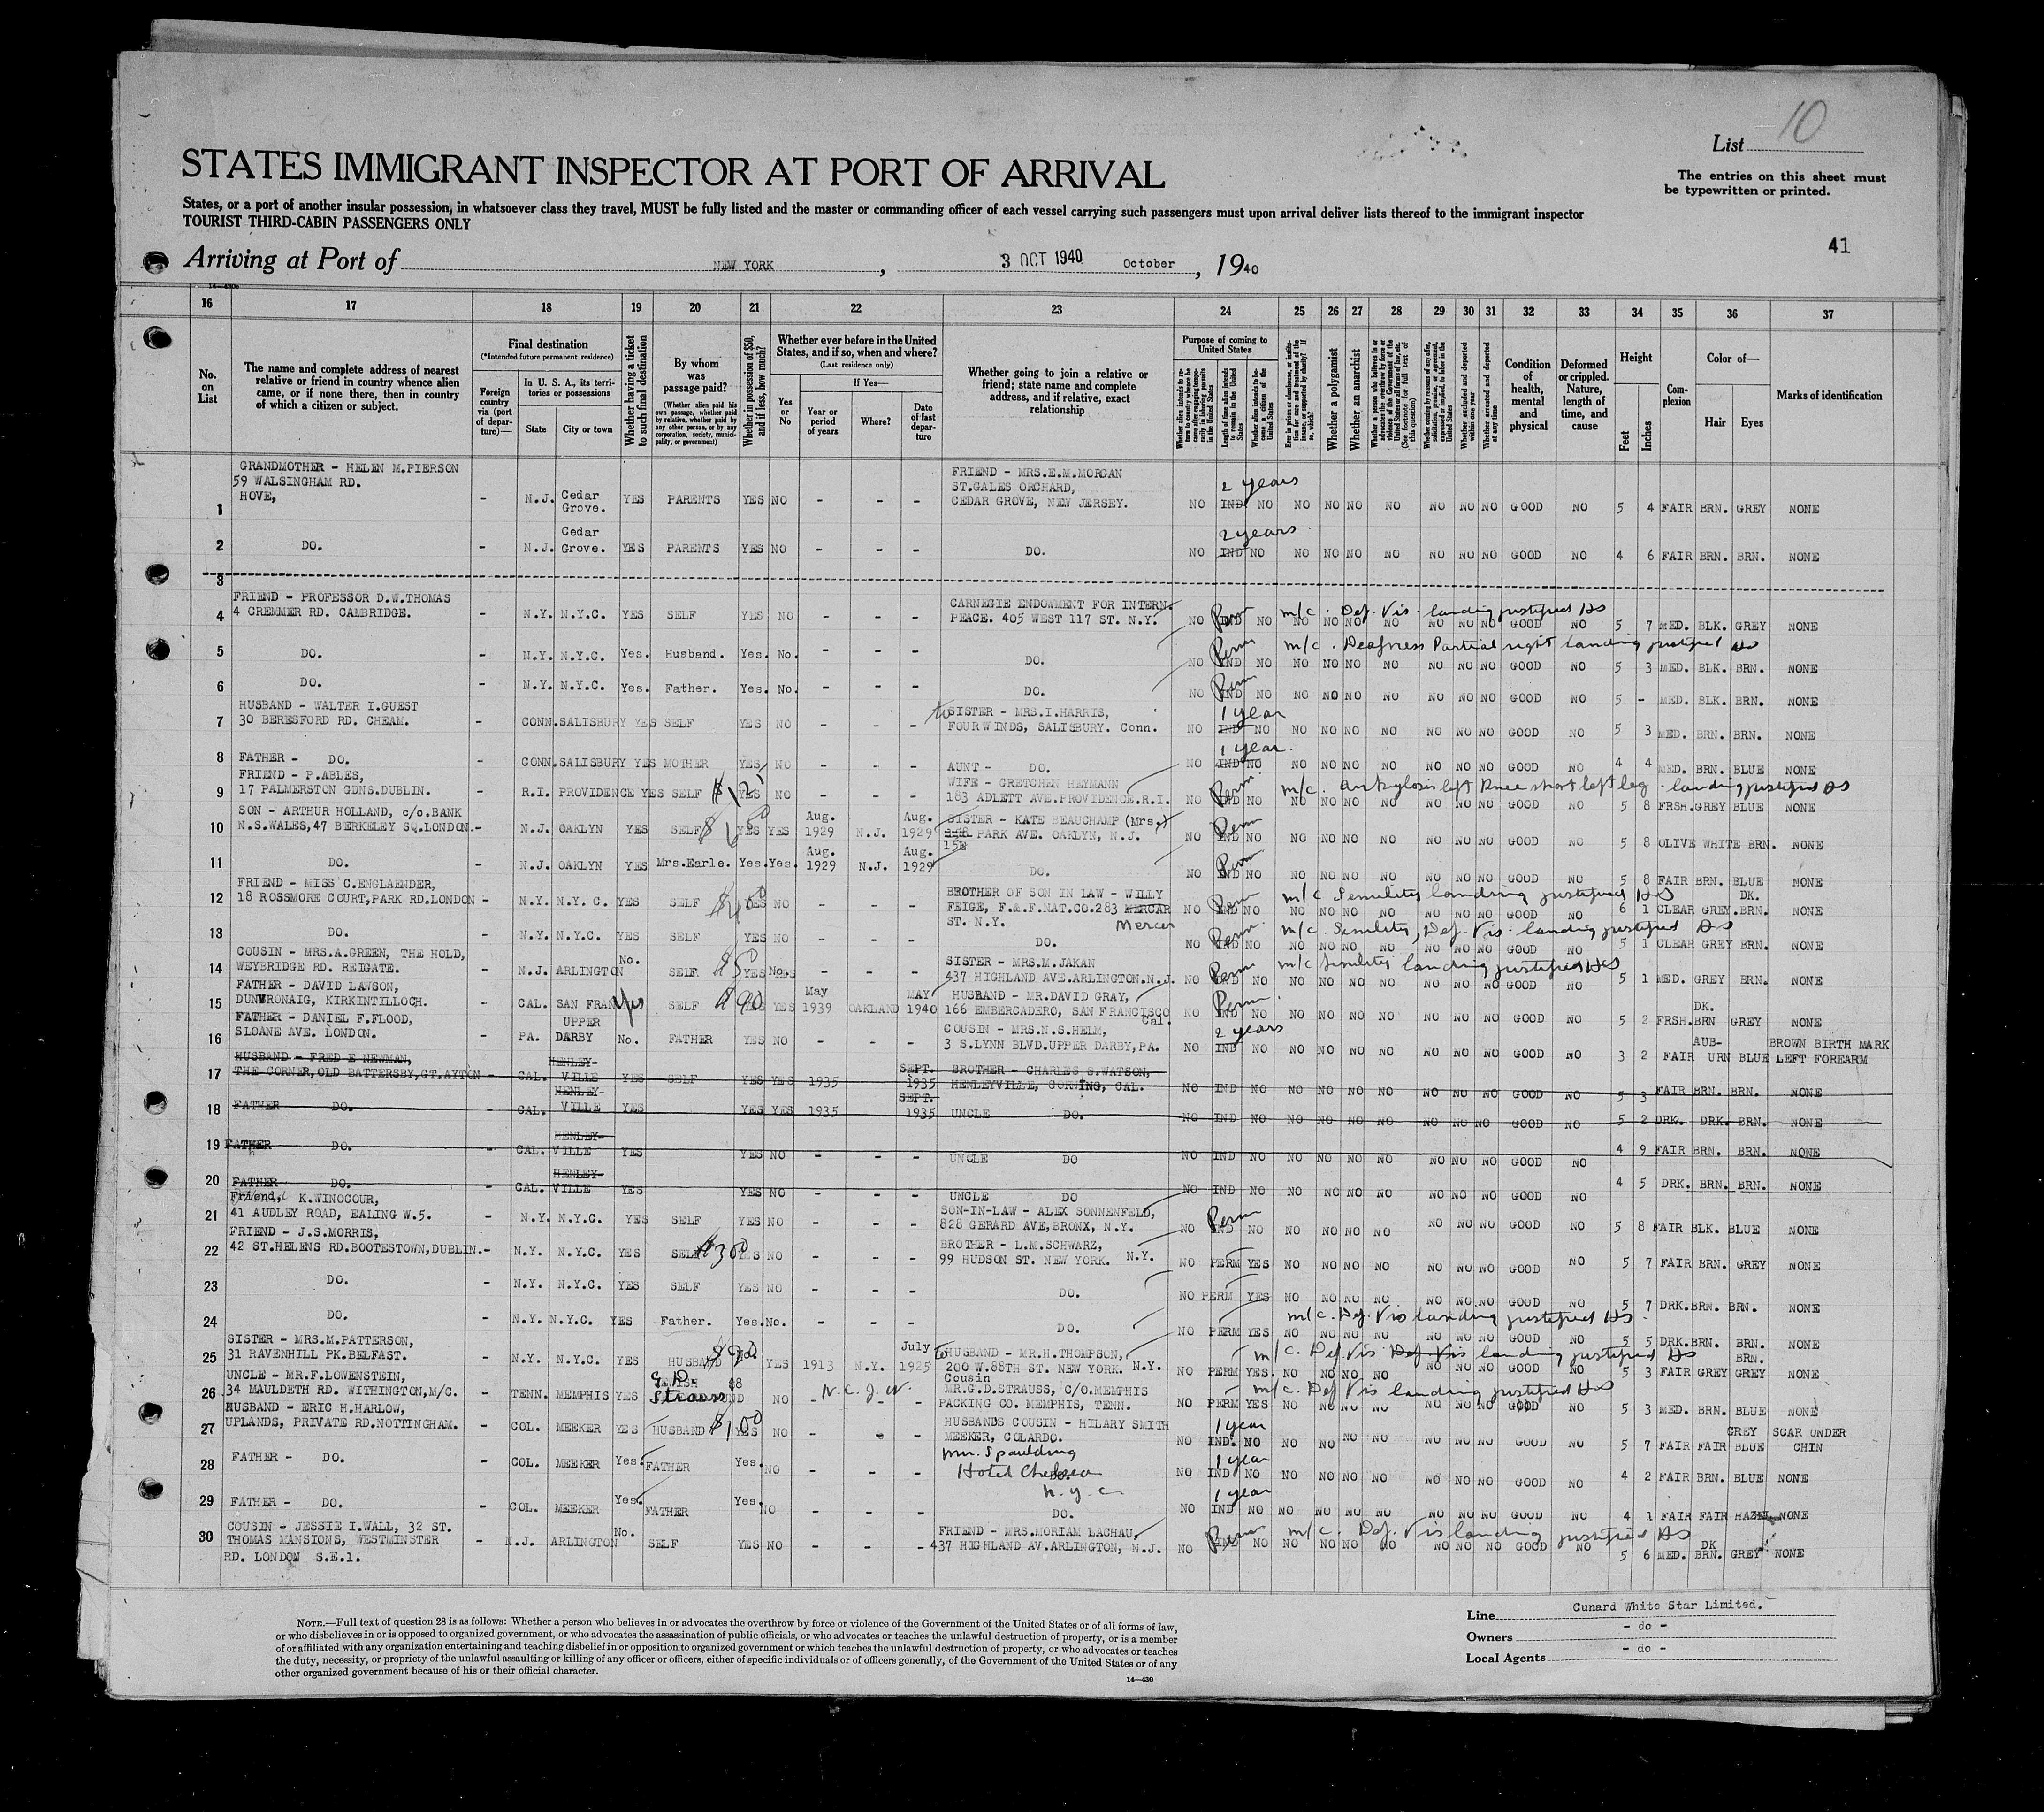 10
List
The entries on this sheet must
be typewritten or printed.
STATES IMMIGRANT INSPECTOR AT PORT OF ARRIVAL
States, or a port of another insular possession, in whatsoever class they travel, MUST be fully listed and the master or commanding officer of each vessel carrying such passengers must upon arrival deliver lists thereof to the immigrant inspector
TOURIST THIRD-CABIN PASSENGERS ONLY
41
Arriving at Port of NEW YORK, 3 OCT 1940 October, 1940
16 17 18 19 20 21 22 23 24 25 26 27 28 29 30 31 32 33 34 35 36 37
No. on List
The name and complete address of nearest relative or friend in country whence alien came, or if none there, then in country of which a citizen or subject.
Final destination
(*Intended future permanent residence)
Foreign country via (port of departure)—
In U. S. A., its territories or possessions
State City or town
Whether having a ticket to such final destination
By whom was passage paid?
(Whether alien paid his own passage, whether paid by relative, whether paid by any other person, or by any corporation, society, municipality, or government)
Whether in possession of $50, and if less, how much?
Whether ever before in the United States, and if so, when and where?
(Last residence only)
Yes or No
If Yes—
Year or period of years
Where?
Date of last departure
Whether going to join a relative or friend; state name and complete address, and if relative, exact relationship
Purpose of coming to United States
Length of time alien intends to remain in the United States
Whether alien intends to become a citizen of the United States
Whether a polygamist
Whether an anarchist
Whether excluded and deported within one year
Whether arrested and deported at any time
Condition of health, mental and physical
Deformed or crippled. Nature, length of time, and cause
Height
Feet Inches
Complexion
Color of—
Hair Eyes
Marks of identification
1 GRANDMOTHER - HELEN M.PIERSON 59 WALSINGHAM RD. HOVE, - N.J. Cedar Grove. YES PARENTS YES NO - - - FRIEND - MRS.E.M.MORGAN ST.GALES ORCHARD, CEDAR GROVE, NEW JERSEY. NO IND 2 years NO NO NO NO NO NO NO NO GOOD NO 5 4 FAIR BRN. GREY NONE
2 DO. - N.J. Cedar Grove. YES PARENTS YES NO - - - DO. NO IND 2 years NO NO NO NO NO NO NO NO GOOD NO 4 6 FAIR BRN. BRN. NONE
3
4 FRIEND - PROFESSOR D.W.THOMAS 4 CREMMER RD. CAMBRIDGE. - N.Y. N.Y.C. YES SELF YES NO - - - CARNEGIE ENDOWMENT FOR INTERN. PEACE. 405 WEST 117 ST. N.Y. NO IND Perm NO m/c. Def. Vis. landing justified NO NO NO NO NO NO NO GOOD NO 5 7 MED. BLK. GREY NONE
5 DO. - N.Y. N.Y.C. Yes. Husband. Yes. No. - - - DO. NO IND Perm NO m/c. Deafness Partial right landing justified NO NO NO NO NO NO NO GOOD NO 5 3 MED. BLK. BRN. NONE
6 DO. - N.Y. N.Y.C. Yes. Father. Yes. No. - - - DO. NO IND Perm NO NO NO NO NO NO NO NO GOOD NO 5 - MED. BLK. BRN. NONE
7 HUSBAND - WALTER I.GUEST 30 BERESFORD RD. CHEAM. - CONN. SALISBURY YES SELF YES NO - - - to SISTER - MRS.I.HARRIS, FOURWINDS, SALISBURY. Conn. NO IND 1 year NO NO NO NO NO NO NO NO GOOD NO 5 3 MED. BRN. BRN. NONE
8 FATHER - DO. - CONN. SALISBURY YES MOTHER YES NO - - - AUNT - DO. NO IND 1 year. NO NO NO NO NO NO NO NO GOOD NO 4 4 MED. BRN. BLUE NONE
9 FRIEND - P.ABLES, 17 PALMERSTON GDNS.DUBLIN. - R.I. PROVIDENCE YES SELF YES NO - - - WIFE - GRETCHEN HEYMANN 183 ADLETT AVE.PROVIDENCE.R.I. NO IND Perm NO m/c. Ankylosis left Knee short left leg. landing justified NO NO NO NO NO NO NO GOOD NO 5 8 FRSH. GREY BLUE NONE
10 SON - ARTHUR HOLLAND, c/o.BANK N.S.WALES,47 BERKELEY SQ.LONDON.- N.J. OAKLYN YES SELF YES YES Aug. 1929 N.J. Aug. 1929 SISTER - KATE BEAUCHAMP (Mrs.) PARK AVE. OAKLYN, N.J. NO IND Perm NO NO NO NO NO NO NO NO GOOD NO 5 8 OLIVE WHITE BRN. NONE
11 DO. - N.J. OAKLYN YES Mrs.Earle. Yes. Yes. Aug. 1929 N.J. Aug. 1929 DO. NO IND Perm NO NO NO NO NO NO NO NO GOOD NO 5 8 FAIR BRN. BLUE NONE
12 FRIEND - MISS C.ENGLAENDER, 18 ROSSMORE COURT,PARK RD.LONDON - N.Y. N.Y. C. YES SELF YES NO - - - BROTHER OF SON IN LAW - WILLY FEIGE, F.&F.NAT.CO.283 MERCAR Mercer ST. N.Y. NO IND Perm NO m/c Senility landing justified NO NO NO NO NO NO NO GOOD NO 6 1 CLEAR GREY. DK. BRN. NONE
13 DO. - N.Y. N.Y.C. YES SELF YES NO - - - DO. NO IND Perm NO m/c. Senility, Def. Vis. landing justified NO NO NO NO NO NO NO GOOD NO 5 1 CLEAR GREY BRN. NONE
14 COUSIN - MRS.A.GREEN, THE HOLD, WEYBRIDGE RD. REIGATE. - N.J. ARLINGTON No. SELF YES No. - - - SISTER - MRS.M.JAKAN 437 HIGHLAND AVE.ARLINGTON.N.J. NO IND Perm NO m/c Senility landing justified NO NO NO NO NO NO NO GOOD NO 5 1 MED. GREY BRN. NONE
15 FATHER - DAVID LAWSON, DUNVRONAIG, KIRKINTILLOCH. - CAL. SAN FRAN Yes SELF $90 YES YES May 1939 OAKLAND MAY 1940 HUSBAND - MR.DAVID GRAY, 166 EMBERCADERO, SAN FRANCISCO Cal. NO IND Perm NO NO NO NO NO NO NO NO GOOD NO 5 2 FRSH. DK. BRN GREY NONE
16 FATHER - DANIEL F.FLOOD, SLOANE AVE. LONDON. - PA. UPPER DARBY No. FATHER YES NO - - - COUSIN - MRS.N.S.HELM, 3 S.LYNN BLVD.UPPER DARBY,PA. NO IND 2 years NO NO NO NO NO NO NO NO GOOD NO 3 2 FAIR AUB-URN BLUE BROWN BIRTH MARK LEFT FOREARM
17 HUSBAND - FRED E NEWMAN, THE CORNER,OLD BATTERSBY,GT.AYTON - CAL. HENLEY-VILLE YES SELF YES YES 1935 SEPT. 1935 BROTHER - CHARLES S.WATSON, HENLEYVILLE, CORNING, CAL. NO IND NO NO NO NO NO NO NO NO GOOD NO 5 3 FAIR BRN. BRN. NONE
18 FATHER DO. - CAL. HENLEY-VILLE YES YES YES 1935 SEPT. 1935 UNCLE DO. NO IND NO NO NO NO NO NO NO NO GOOD NO 5 2 DRK. DRK. BRN. NONE
19 FATHER DO. - CAL. HENLEY-VILLE YES YES NO - - - UNCLE DO NO IND NO NO NO NO NO NO NO NO GOOD NO 4 9 FAIR BRN. BRN. NONE
20 FATHER DO. - CAL. HENLEY-VILLE YES YES NO - - - UNCLE DO NO IND NO NO NO NO NO NO NO NO GOOD NO 4 5 DRK. BRN. BRN. NONE
21 Friend, K.WINOCOUR, 41 AUDLEY ROAD, EALING W.5. - N.Y. N.Y.C. YES SELF YES NO - - - SON-IN-LAW - ALEX SONNENFELD, 828 GERARD AVE,BRONX, N.Y. NO IND Perm NO NO NO NO NO NO NO NO GOOD NO 5 8 FAIR BLK. BLUE NONE
22 FRIEND - J.S.MORRIS, 42 ST.HELENS RD.BOOTESTOWN,DUBLIN.- N.Y. N.Y.C. YES SELF $30 YES NO - - - BROTHER - L.M.SCHWARZ, 99 HUDSON ST. NEW YORK. N.Y. NO PERM YES NO NO NO NO NO NO NO GOOD NO 5 7 FAIR BRN. GREY NONE
23 DO. - N.Y. N.Y.C. YES SELF YES NO - - - DO. NO PERM YES NO NO NO NO NO NO NO GOOD NO 5 7 DRK. BRN. BRN. NONE
24 DO. - N.Y. N.Y.C. YES Father. Yes. No. - - - DO. NO PERM YES m/c. Def. Vis landing justified NO NO NO NO NO NO NO GOOD NO 5 5 DRK. BRN. BRN. NONE
25 SISTER - MRS.M.PATTERSON, 31 RAVENHILL PK.BELFAST. - N.Y. N.Y.C. YES HUSBAND YES 1913 N.Y. July 1925 to HUSBAND - MR.H.THOMPSON, 200 W.88TH ST. NEW YORK. N.Y. NO PERM YES. m/c. Def. Vis Def. Vis landing justified NO NO NO NO NO NO NO GOOD NO 5 3 FAIR GREY BRN. GREY NONE
26 UNCLE - MR.F.LOWENSTEIN, 34 MAULDETH RD. WITHINGTON,M/C. - TENN. MEMPHIS YES G. D. Strauss $8 NO N.C.J.W. - - Cousin MR.G.D.STRAUSS, C/O.MEMPHIS PACKING CO. MEMPHIS, TENN. NO PERM YES m/c. Def Vis landing justified NO NO NO NO NO NO NO GOOD NO 5 3 MED. BRN. BLUE NONE
27 HUSBAND - ERIC H.HARLOW, UPLANDS, PRIVATE RD.NOTTINGHAM. - COL. MEEKER YES HUSBAND $100 YES NO - - - HUSBANDS COUSIN - HILARY SMITH MEEKER, COLARDO. NO IND. 1 year NO NO NO NO NO NO NO NO GOOD NO 5 7 FAIR FAIR GREY BLUE SCAR UNDER CHIN
28 FATHER - DO. - COL. MEEKER Yes. FATHER Yes. NO - - - Mrs. Spaulding Hotel Chelsea N.Y.C. NO IND 1 year NO NO NO NO NO NO NO NO GOOD NO 4 2 FAIR BRN. BLUE NONE
29 FATHER - DO. - COL. MEEKER Yes. FATHER Yes. NO - - - DO. NO IND 1 year NO NO NO NO NO NO NO NO GOOD NO 4 1 FAIR FAIR HAZEL NONE
30 COUSIN - JESSIE I.WALL, 32 ST. THOMAS MANSIONS, WESTMINSTER RD. LONDON S.E.1. - N.J. ARLINGTON No. SELF YES NO - - - FRIEND - MRS.MORIAM LACHAU, 437 HIGHLAND AV.ARLINGTON, N.J. NO IND Perm NO m/c. Def. Vis landing justified NO NO NO NO NO NO NO GOOD NO 5 6 MED. DK BRN. GREY NONE
NOTE.—Full text of question 28 is as follows: Whether a person who believes in or advocates the overthrow by force or violence of the Government of the United States or of all forms of law,
or who disbelieves in or is opposed to organized government, or who advocates the assassination of public officials, or who advocates or teaches the unlawful destruction of property, or is a member
of or affiliated with any organization entertaining and teaching disbelief in or opposition to organized government or which teaches the unlawful destruction of property, or who advocates or teaches
the duty, necessity, or propriety of the unlawful assaulting or killing of any officer or officers, either of specific individuals or of officers generally, of the Government of the United States or of any
other organized government because of his or their official character.
14—430
Line Cunard White Star Limited.
Owners - do -
Local Agents - do -